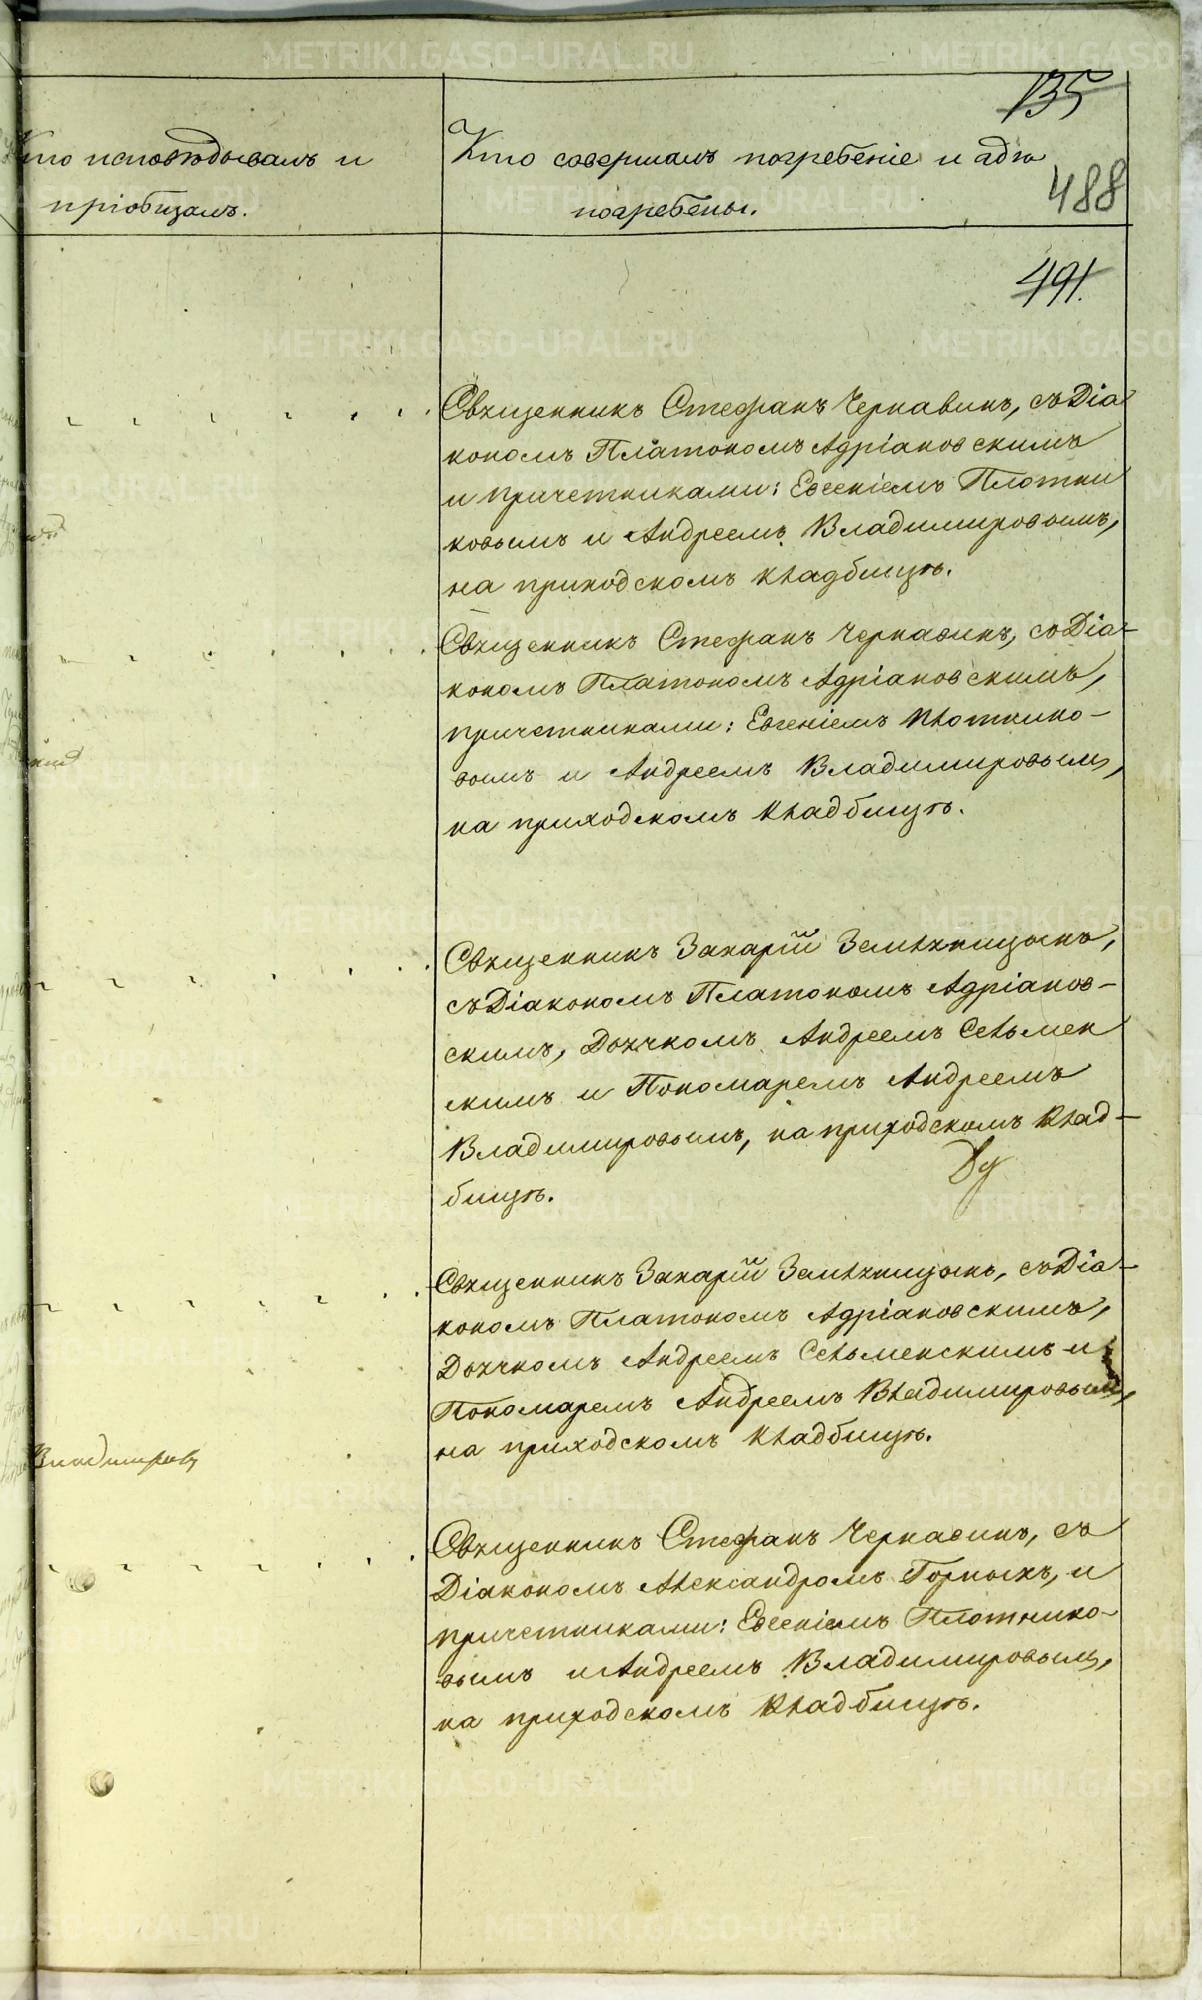 METRIKI.GASO-URAL.RU
135
Кто исповѣдывалъ и
пріобщалъ.
Кто совершалъ погребеніе и гдѣ
погребены.
488
491.
Священникъ Стефанъ Чернавинъ, съ Діа
кономъ Платономъ Адріановскимъ
и причетниками: Евгеніемъ Плотни
ковымъ и Андреемъ Владимировымъ,
на приходскомъ кладбищѣ.
Священникъ Стефанъ Чернавинъ, съ Діа-
кономъ Платономъ Адріановскимъ,
причетниками: Евгеніемъ Плотнико-
вымъ и Андреемъ Владимировымъ,
на приходскомъ кладбищѣ.
Священникъ Захарій Земляницынъ,
съ Діакономъ Платономъ Адріанов-
скимъ, Дьячкомъ Андреемъ Сельмен
скимъ и Пономаремъ Андреемъ
Владимировымъ, на приходскомъ клад-
бищѣ.
Священникъ Захарій Земляницынъ, съ Діа-
кономъ Платономъ Адріановскимъ,
Дьячкомъ Андреемъ Сельменскимъ и
Пономаремъ Андреемъ Владимировымъ,
на приходскомъ кладбищѣ.
Владимировъ
Священникъ Стефанъ Чернавинъ, съ
Діакономъ Александромъ Горныхъ, и
причетниками: Евгеніемъ Плотнико-
вымъ и Андреемъ Владимировымъ,
на приходскомъ кладбищѣ.